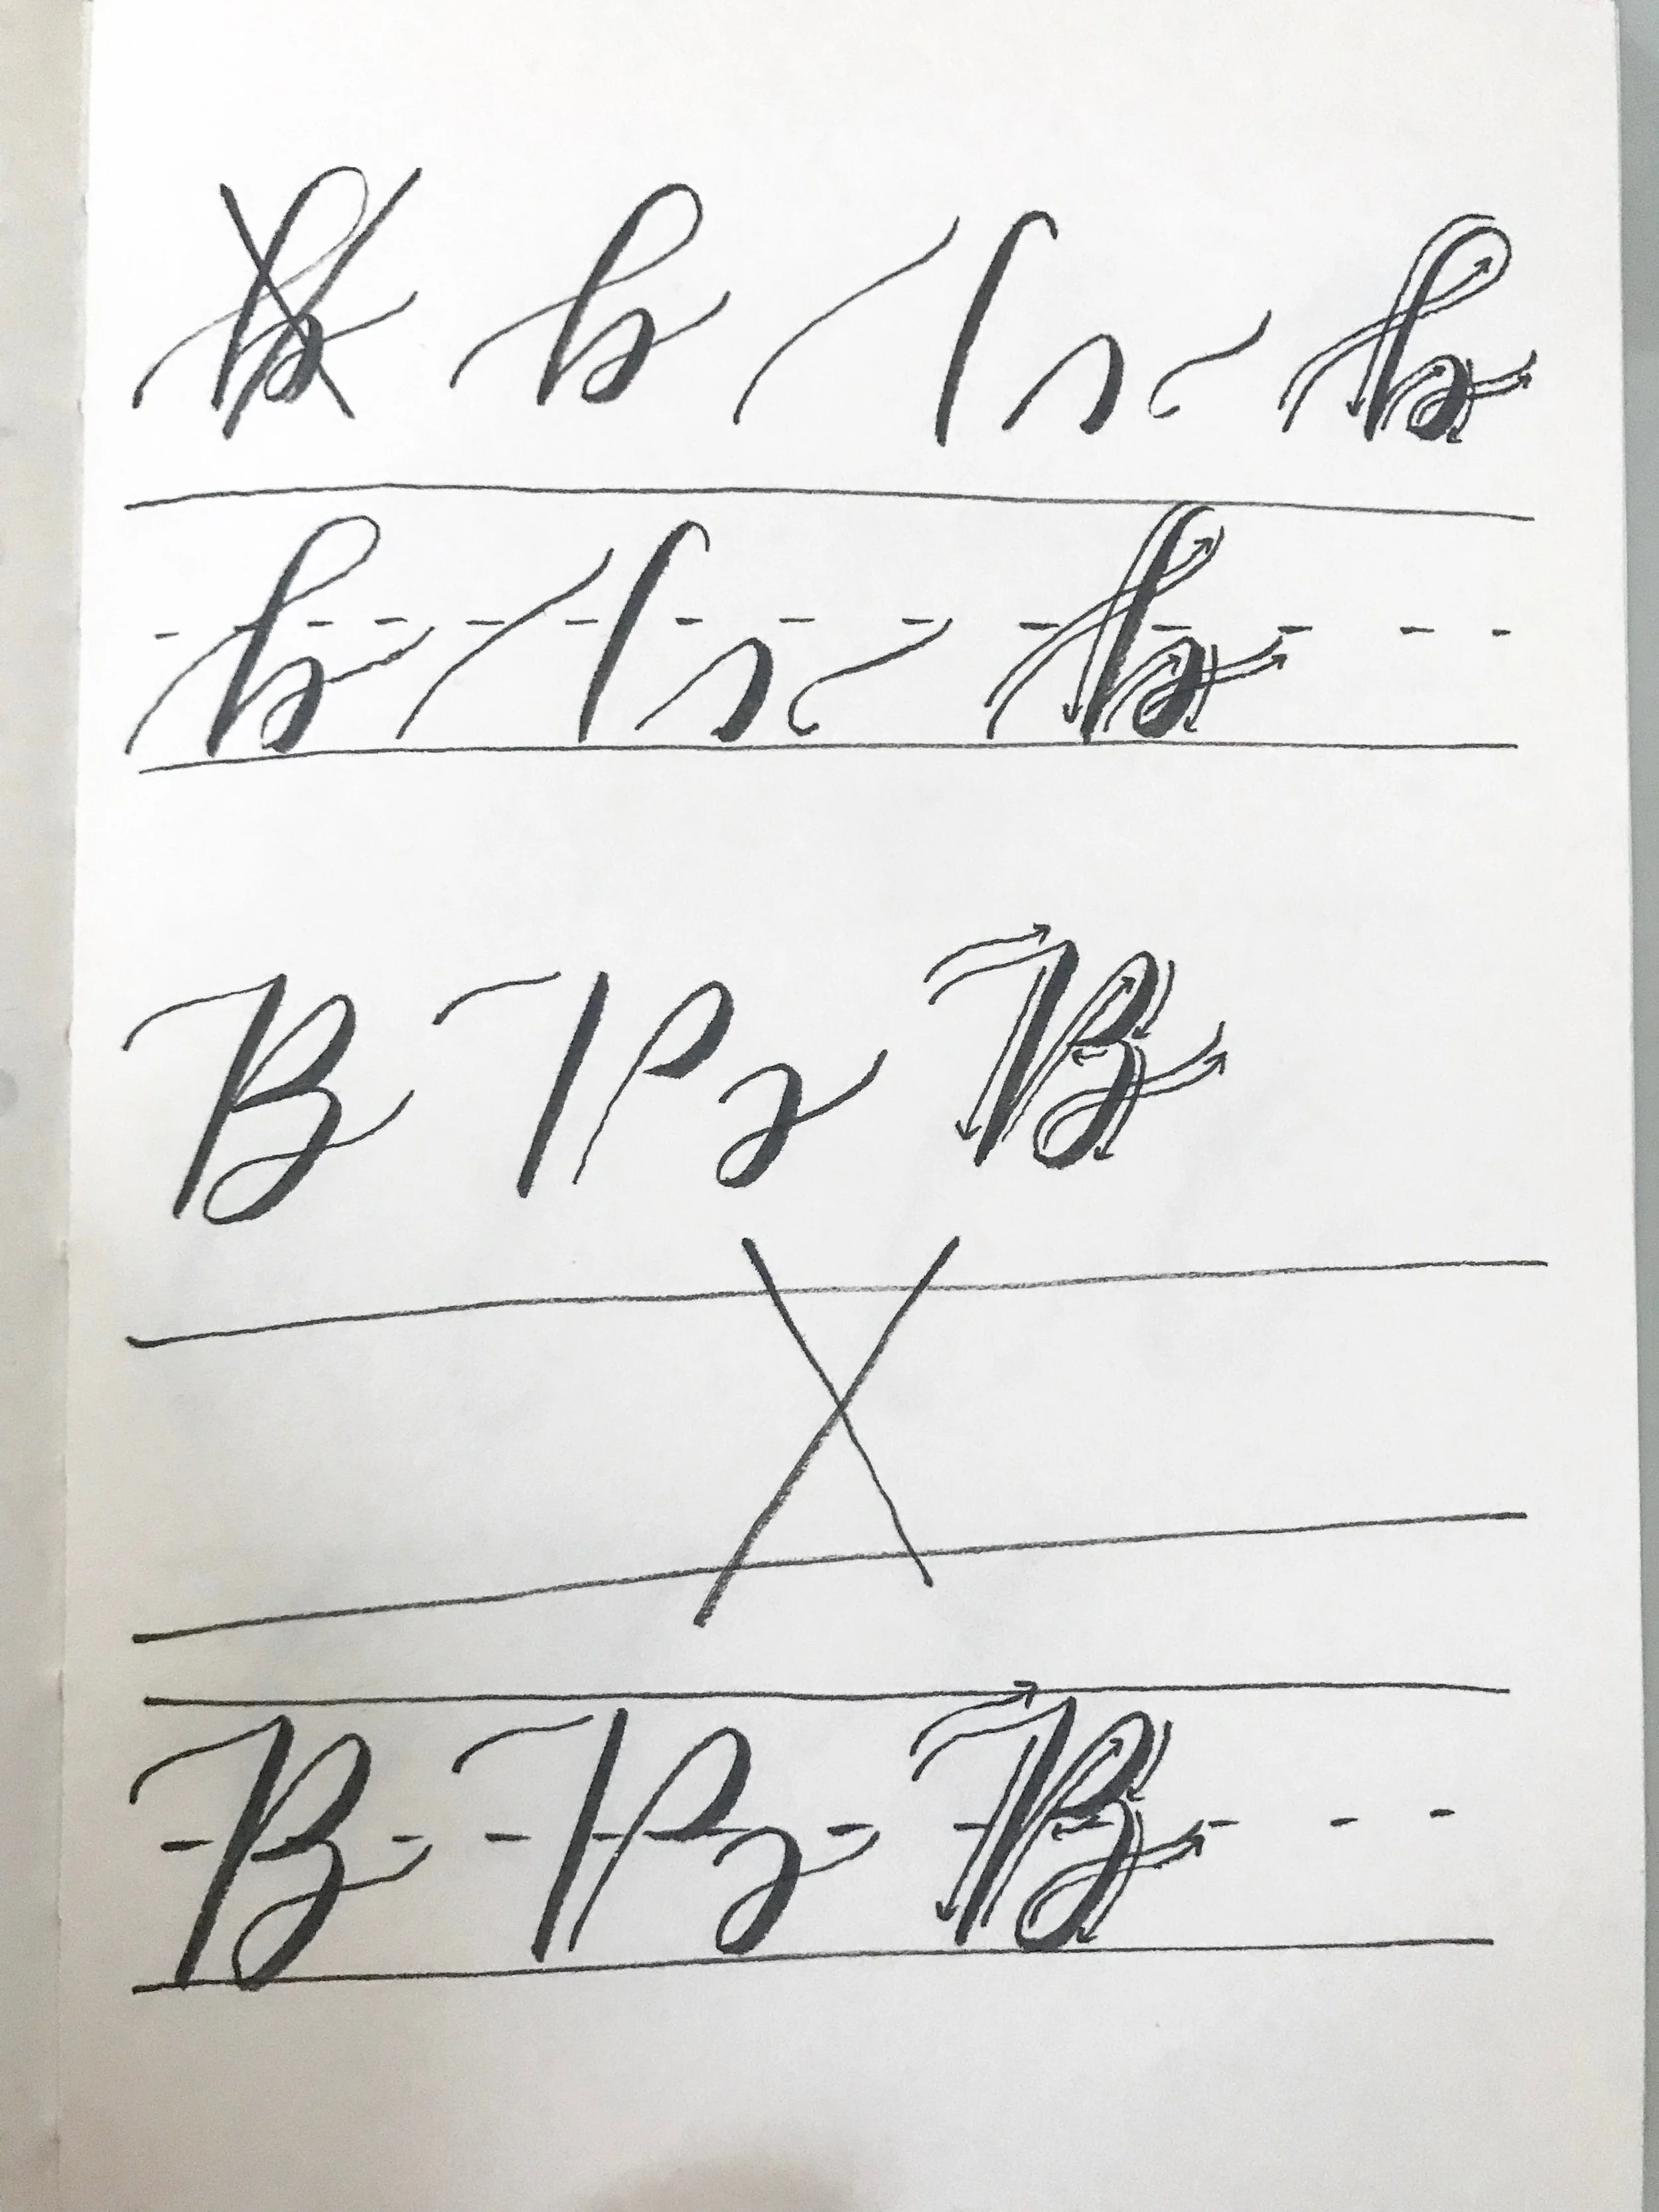 b b
b b
B B
B B